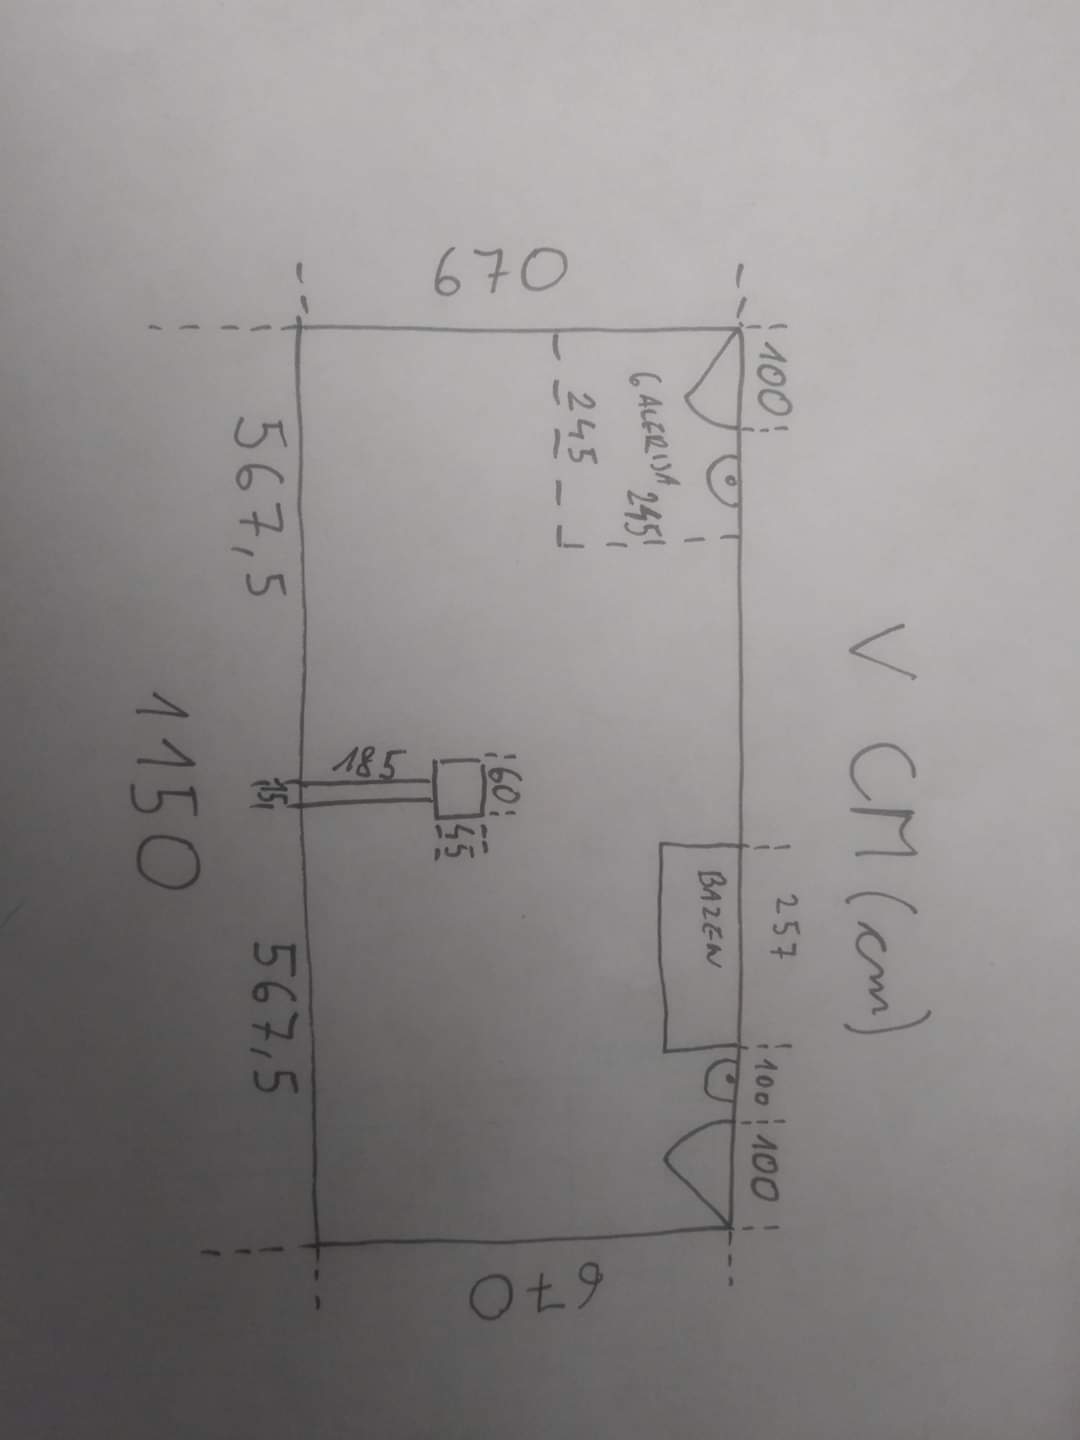 V CM (cm)
100
257
100
100
BAZEN
GALERIJA
245
245
670
670
60
45
185
567,5
15
567,5
1150